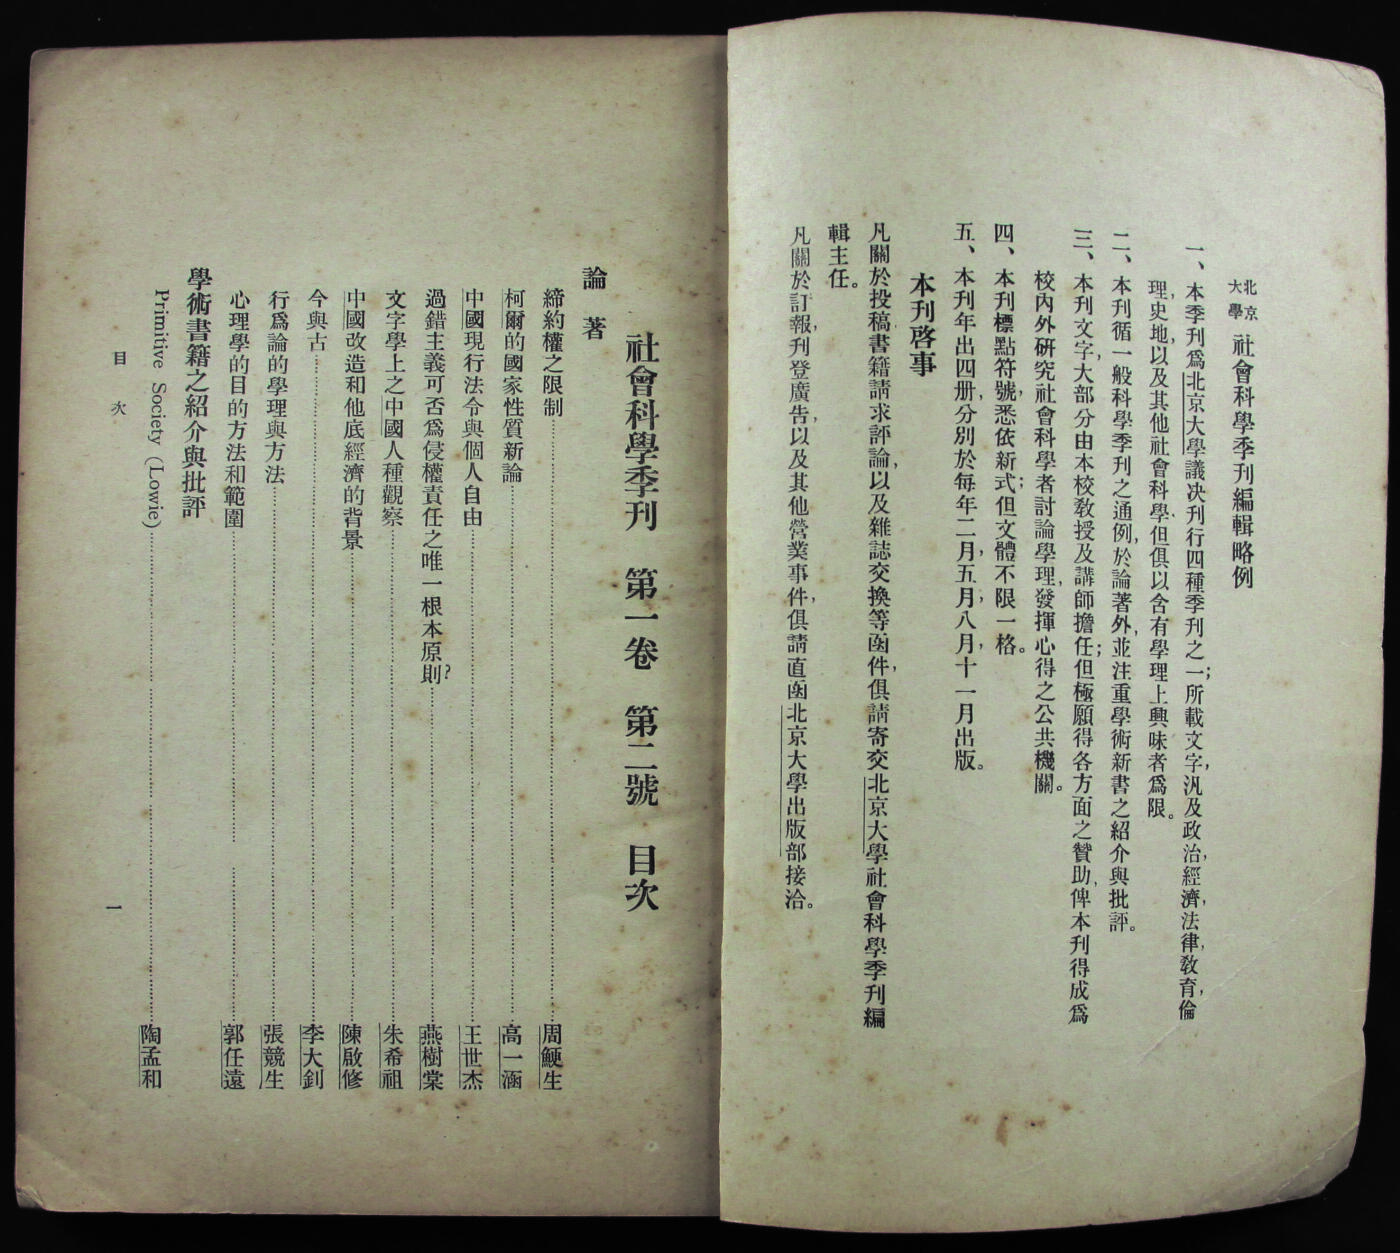 北京大學 社會科學季刊編輯略例
一、本季刊爲北京大學議决刊行四種季刊之一；所載文字，汎及政治，經濟，法律，敎育，倫
理，史地，以及其他社會科學，但俱以含有學理上興味者爲限。
二、本刊循一般科學季刊之通例，於論著外，並注重學術新書之紹介與批評。
三、本刊文字，大部分由本校敎授及講師擔任；但極願得各方面之贊助，俾本刊得成爲
校內外硏究社會科學者討論學理，發揮心得之公共機關。
四、本刊標點符號，悉依新式；但文體不限一格。
五、本刊年出四册，分別於每年二月，五月，八月，十一月出版。
本刊啓事
凡關於投稿，書籍請求評論，以及雜誌交換等函件，俱請寄交北京大學社會科學季刊編
輯主任。
凡關於訂報，刊登廣告，以及其他營業事件，俱請直函北京大學出版部接洽。
社會科學季刊 第一卷 第二號 目次
論著
締約權之限制……周鯁生
柯爾的國家性質新論……高一涵
中國現行法令與個人自由……王世杰
過錯主義可否爲侵權責任之唯一根本原則？……燕樹棠
文字學上之中國人種觀察……朱希祖
中國改造和他底經濟的背景……陳啟修
今與古……李大釗
行爲論的學理與方法……張競生
心理學的目的方法和範圍……郭任遠
學術書籍之紹介與批評
Primitive Society (Lowie)……陶孟和
目次
一